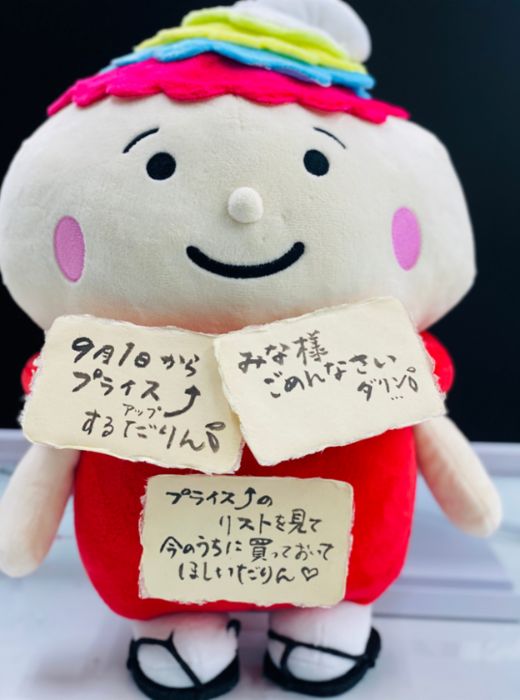 9月1日から
プライス⤴
アップ
するだりん
みな様
ごめんなさい
ダリン
...
プライス⤴の
リストを見て
今のうちに買っておいて
ほしいだりん♡